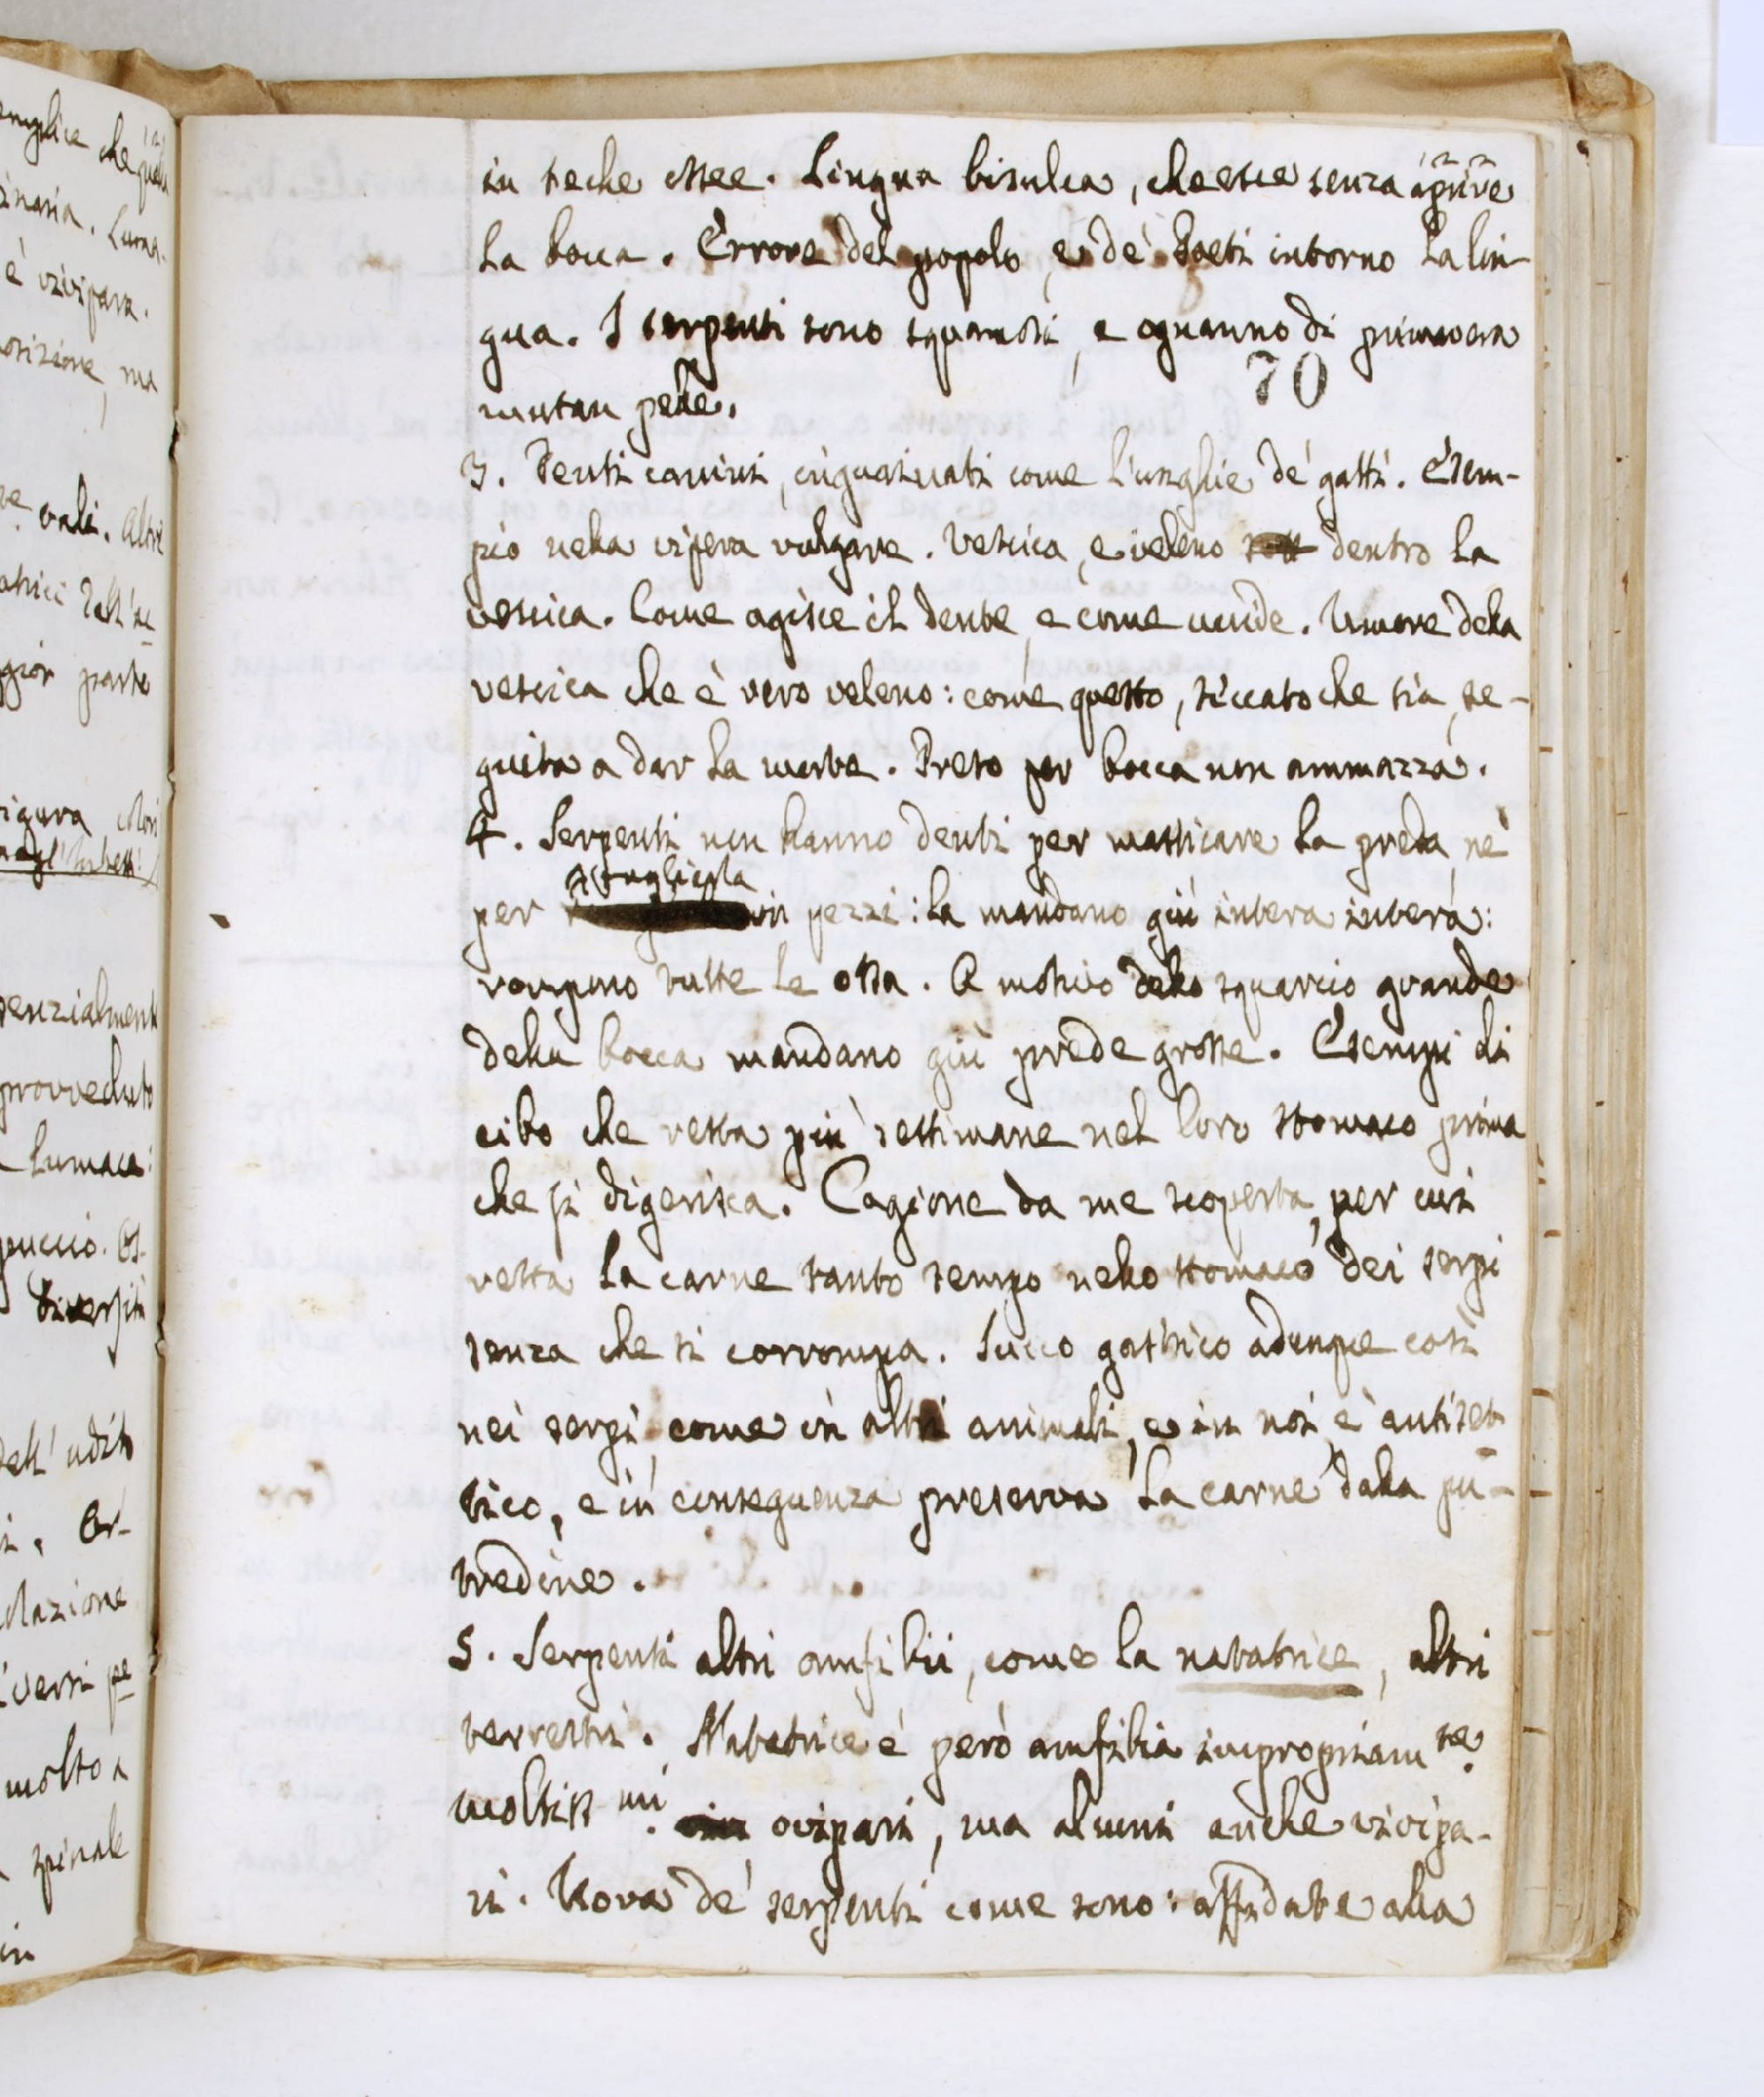 emplice che
inaria. Luma-
è vivipara.
ma
vali. Altri
gior parte
senzialment
provveduto
Lumaca:
puccio. Os-
diversità
dell' udito
Or-
diversi pe
molto a
spinale
in
in teche ossee. Lingua bisulca, che esce senza aprire
la bocca. Errore del popolo, e de' Poeti intorno la lin-
gua. I serpenti sono squamosi, e ognanno di primavera
70
mutan pelle.
3. Denti canini, inguainati come l'unghie de' gatti. Esem-
pio nella vipera vulgare. Vescica, e veleno dentro la
vescica. Come agisce il dente, e come uccide. Umore della
vescica che è vero veleno: come questo, seccato che sia, se-
guita a dar la morte. Preso per bocca non ammazza.
4. Serpenti non hanno denti per masticare la preda, nè
a tagliarla
per in pezzi: la mandano giù intera intera:
rompono tutte le ossa. A motivo dello squarcio grande
della bocca mandano giù prede grosse. Esempi di
cibo che resta più settimane nel loro stomaco prima
che si digerisca. Cagione da me scoperta, per cui
resta la carne tanto tempo nello stomaco dei serpi
senza che si corrompa. Succo gastrico adunque così
nei serpi, come in altri animali, e in noi, è antiset-
tico, e in conseguenza preserva la carne dalla pu-
tredine.
5. Serpenti altri amfibii, come la natatrice, altri
terrestri. Natatrice è però amfibia impropriamte.
Moltiss mi. ovipari, ma alcuni anche vivipa-
ri. Uova de' serpenti come sono: affidate alla